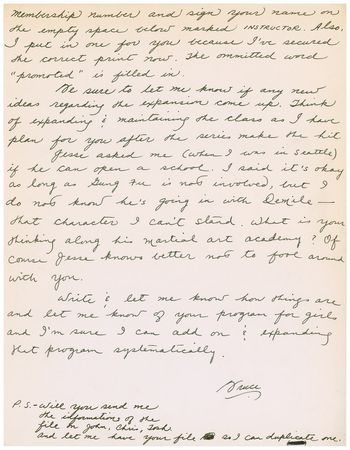 membership number and sign your name on
the empty space below marked INSTRUCTOR. Also,
I put in one for you because I've secured
the correct print now. The ommitted word
"promoted" is filled in.
Be sure to let me know if any new
ideas regarding the expansion come up. Think
of expanding & maintaining the class as I have
plan for you after the series make the hit.
Jesse asked me (when I was in Seattle)
if he can open a school. I said it's okay
as long as Gung Fu is not involved, but I
do not know he's going in with DeMile —
that character I can't stand. What is your
thinking along his martial art academy? Of
course Jesse knows better not to fool around
with you.
Write & let me know how things are
and let me know of your program for girls
and I'm sure I can add on & expanding
that program systematically.
Bruce
P.S. - Will you send me
the information of the
file on John, Chris, Tosh
and let me have your file so I can duplicate one.